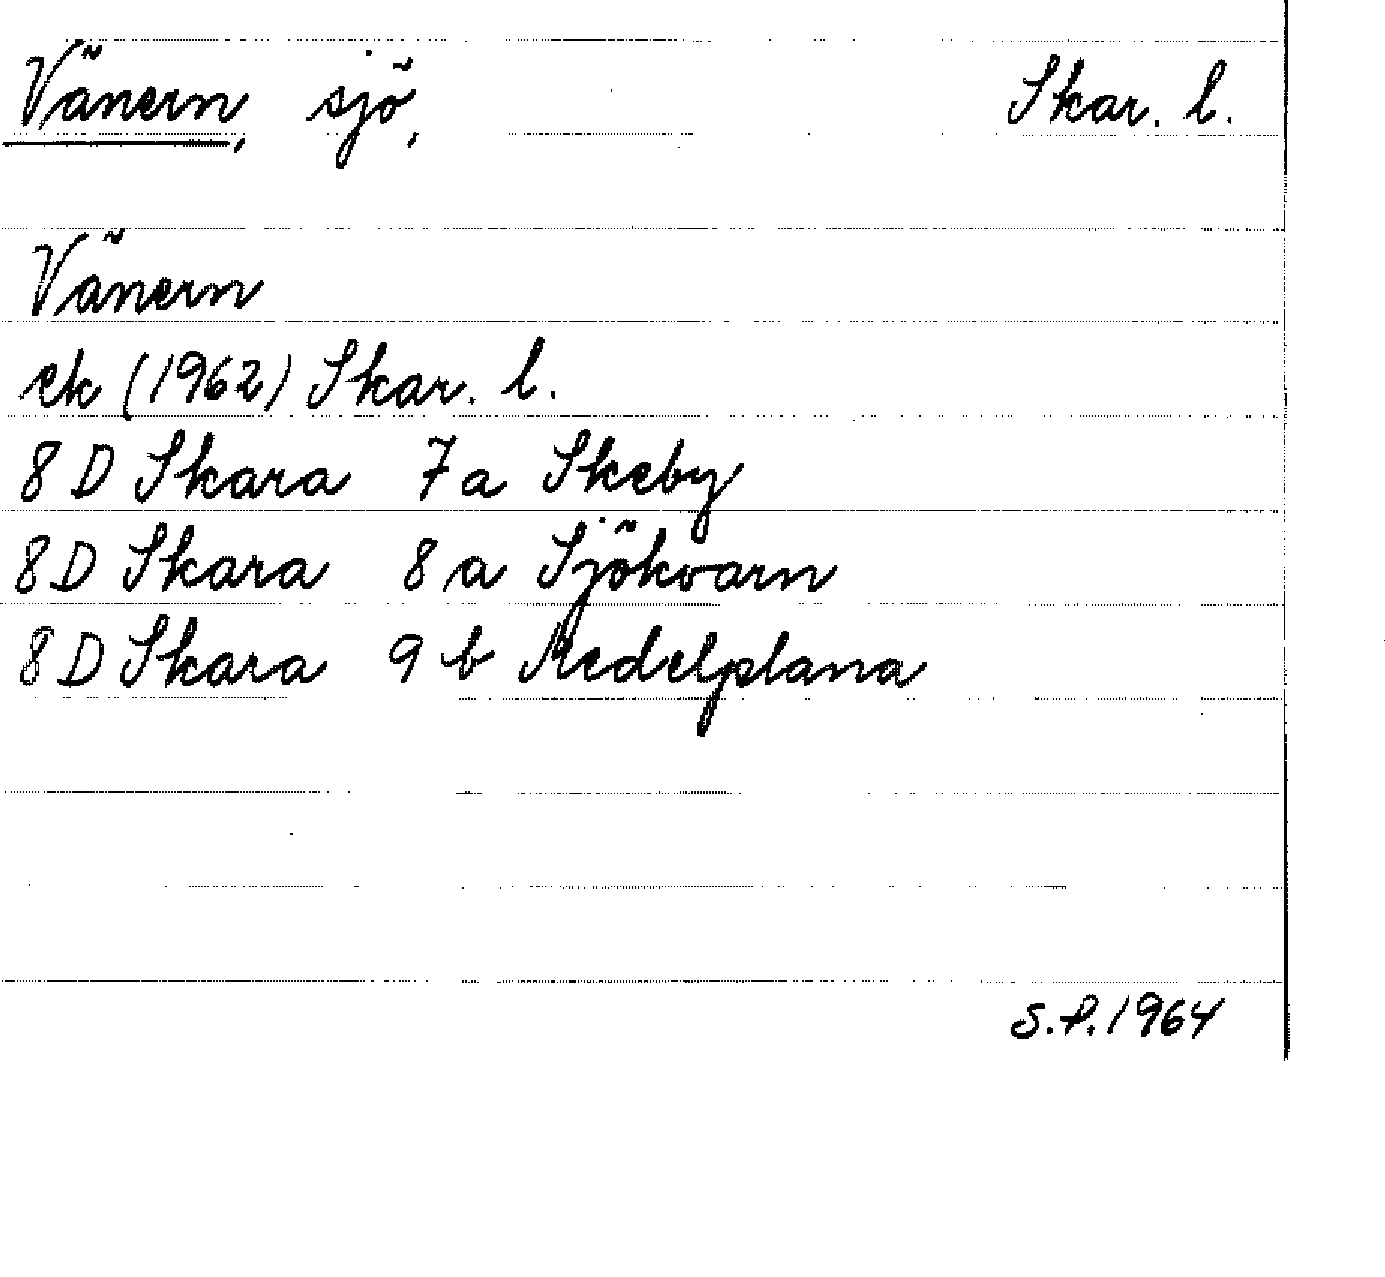 Vänern, sjö, Skar. l.
Vänern
ek (1962) Skar. l.
8 D Skara 7 a Skeby
8 D Skara 8 a Sjökvarn
8 D Skara 9 b Medelplana
S.P. 1964